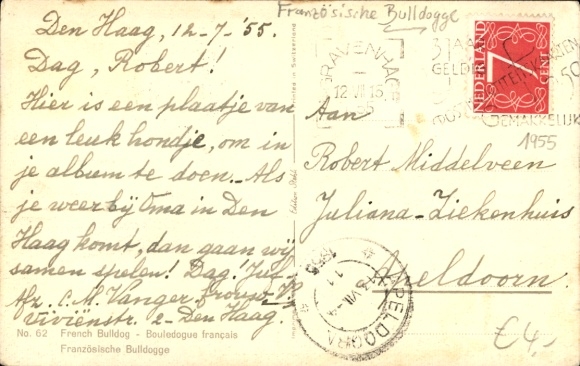 Französische Bulldogge
Den Haag, 12-7-'55.
Dag, Robert!
Hier is een plaatje van
een leuk hondje, om in
je album te doen. Als
je weer bij Oma in Den
Haag komt, dan gaan wij
samen spelen! Dag!
Afz. C. M. Vanger
2 - Den Haag.
No. 62 French Bulldog - Bouledogue français
Französische Bulldogge
Printed in Switzerland
'S GRAVENHAGE
12 VII 16
55
NEDERLAND
7
CENT
1955
Aan
Robert Middelveen
Juliana-Ziekenhuis
Apeldoorn.
APELDOORN
1955
€4,-